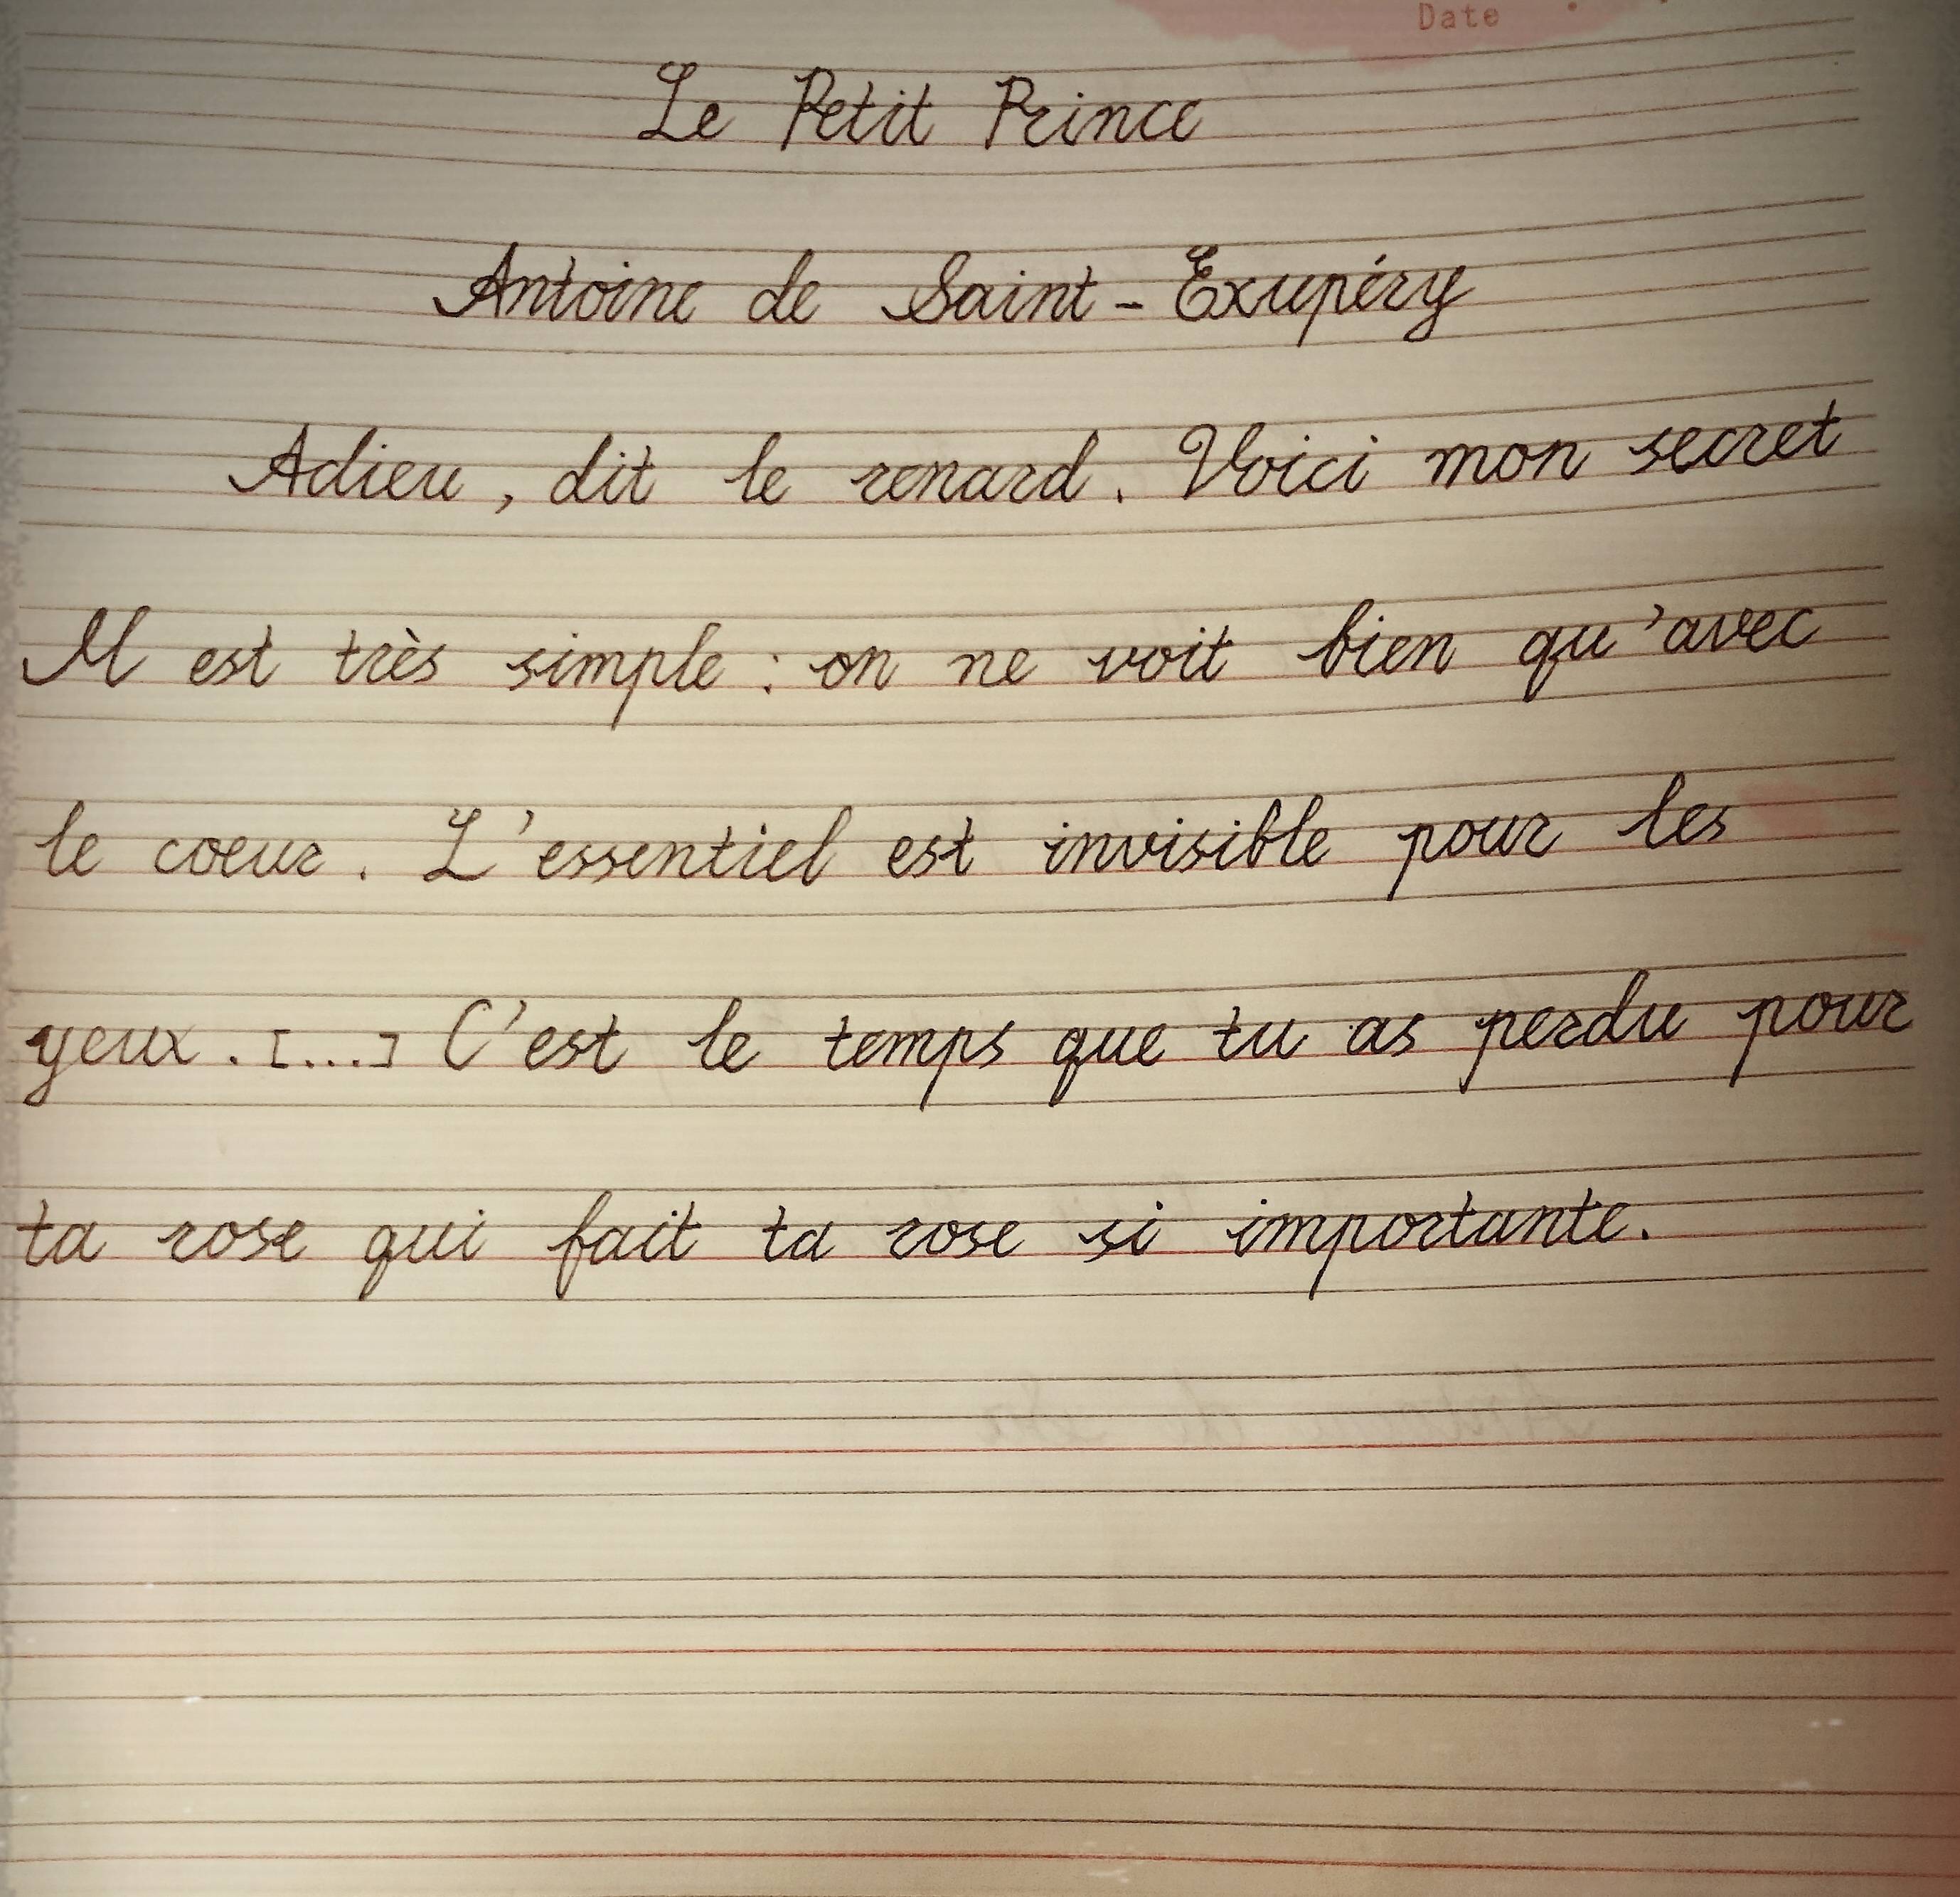 Date
Le Petit Prince
Antoine de Saint-Exupéry
Adieu, dit le renard. Voici mon secret
Il est très simple : on ne voit bien qu'avec
le coeur. L'essentiel est invisible pour les
yeux. [...] C'est le temps que tu as perdu pour
ta rose qui fait ta rose si importante.